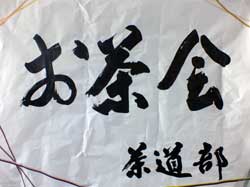 お茶会
茶道部